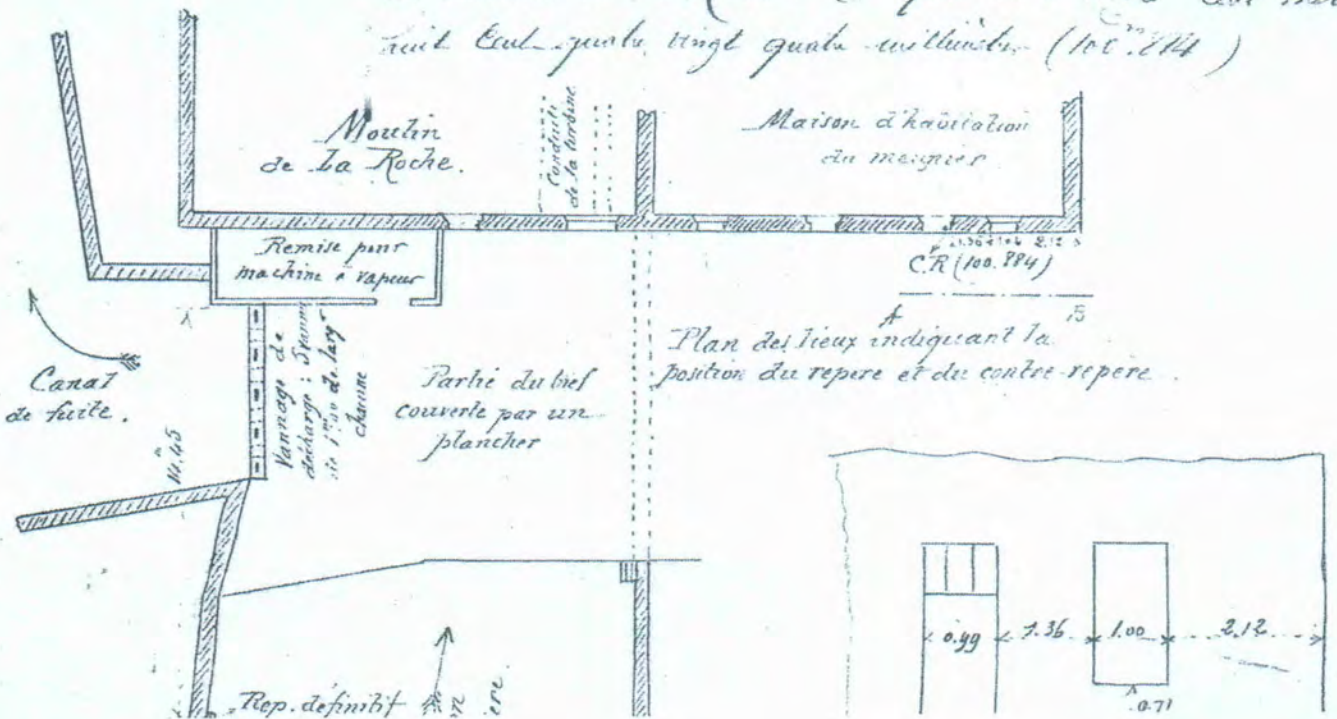 huit cent quatre vingt quatre millimètres (100.884)
Moulin
de La Roche.
Conduite
de la turbine
Maison d'habitation
du meunier
Remise pour
machine à vapeur
C.R (100.884)
A B
Plan des lieux indiquant la
position du repère et du contre-repère.
Canal
de fuite.
Vannage de
décharge :
de larg
chacune
Partie du bief
couverte par un
plancher
0.99 1.36 1.00 2.12
0.71
Rep. définitif